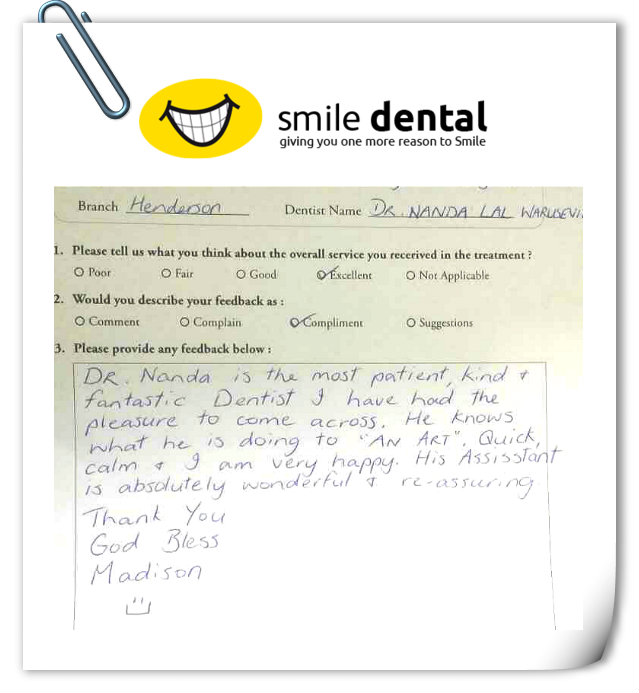 smile dental
giving you one more reason to Smile
Branch Henderson Dentist Name DR. NANDA LAL
1. Please tell us what you think about the overall service you recerived in the treatment ?
O Poor O Fair O Good O Excellent O Not Applicable
2. Would you describe your feedback as :
O Comment O Complain O Compliment O Suggestions
3. Please provide any feedback below :
DR. Nanda is the most patient, kind &
fantastic Dentist I have had the
pleasure to come across. He knows
what he is doing to "AN ART". Quick,
calm & I am very happy. His Assisstant
is absolutely wonderful & re-assuring
Thank You
God Bless
Madison